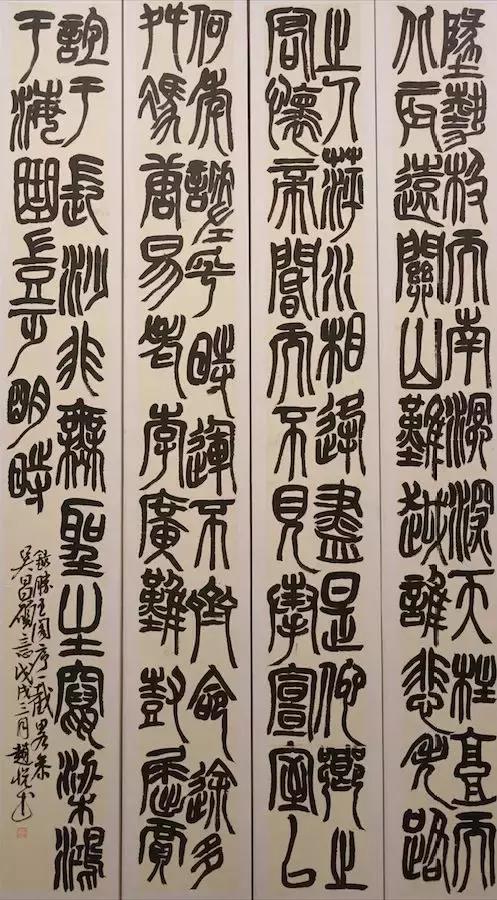 墬勢极而南溟深天柱高而
北辰遠關山難越誰悲失路
之人萍水相逢盡是他鄉之
客懷帝閽而不見奉宣室以
何年嗟乎時運不齊命途多
舛馮唐易老李廣難封屈賈
誼于長沙非無聖主竄梁鴻
于海曲豈乏明時
錄滕王閣序一截畧參
吳昌碩意戊戌三月趙悅